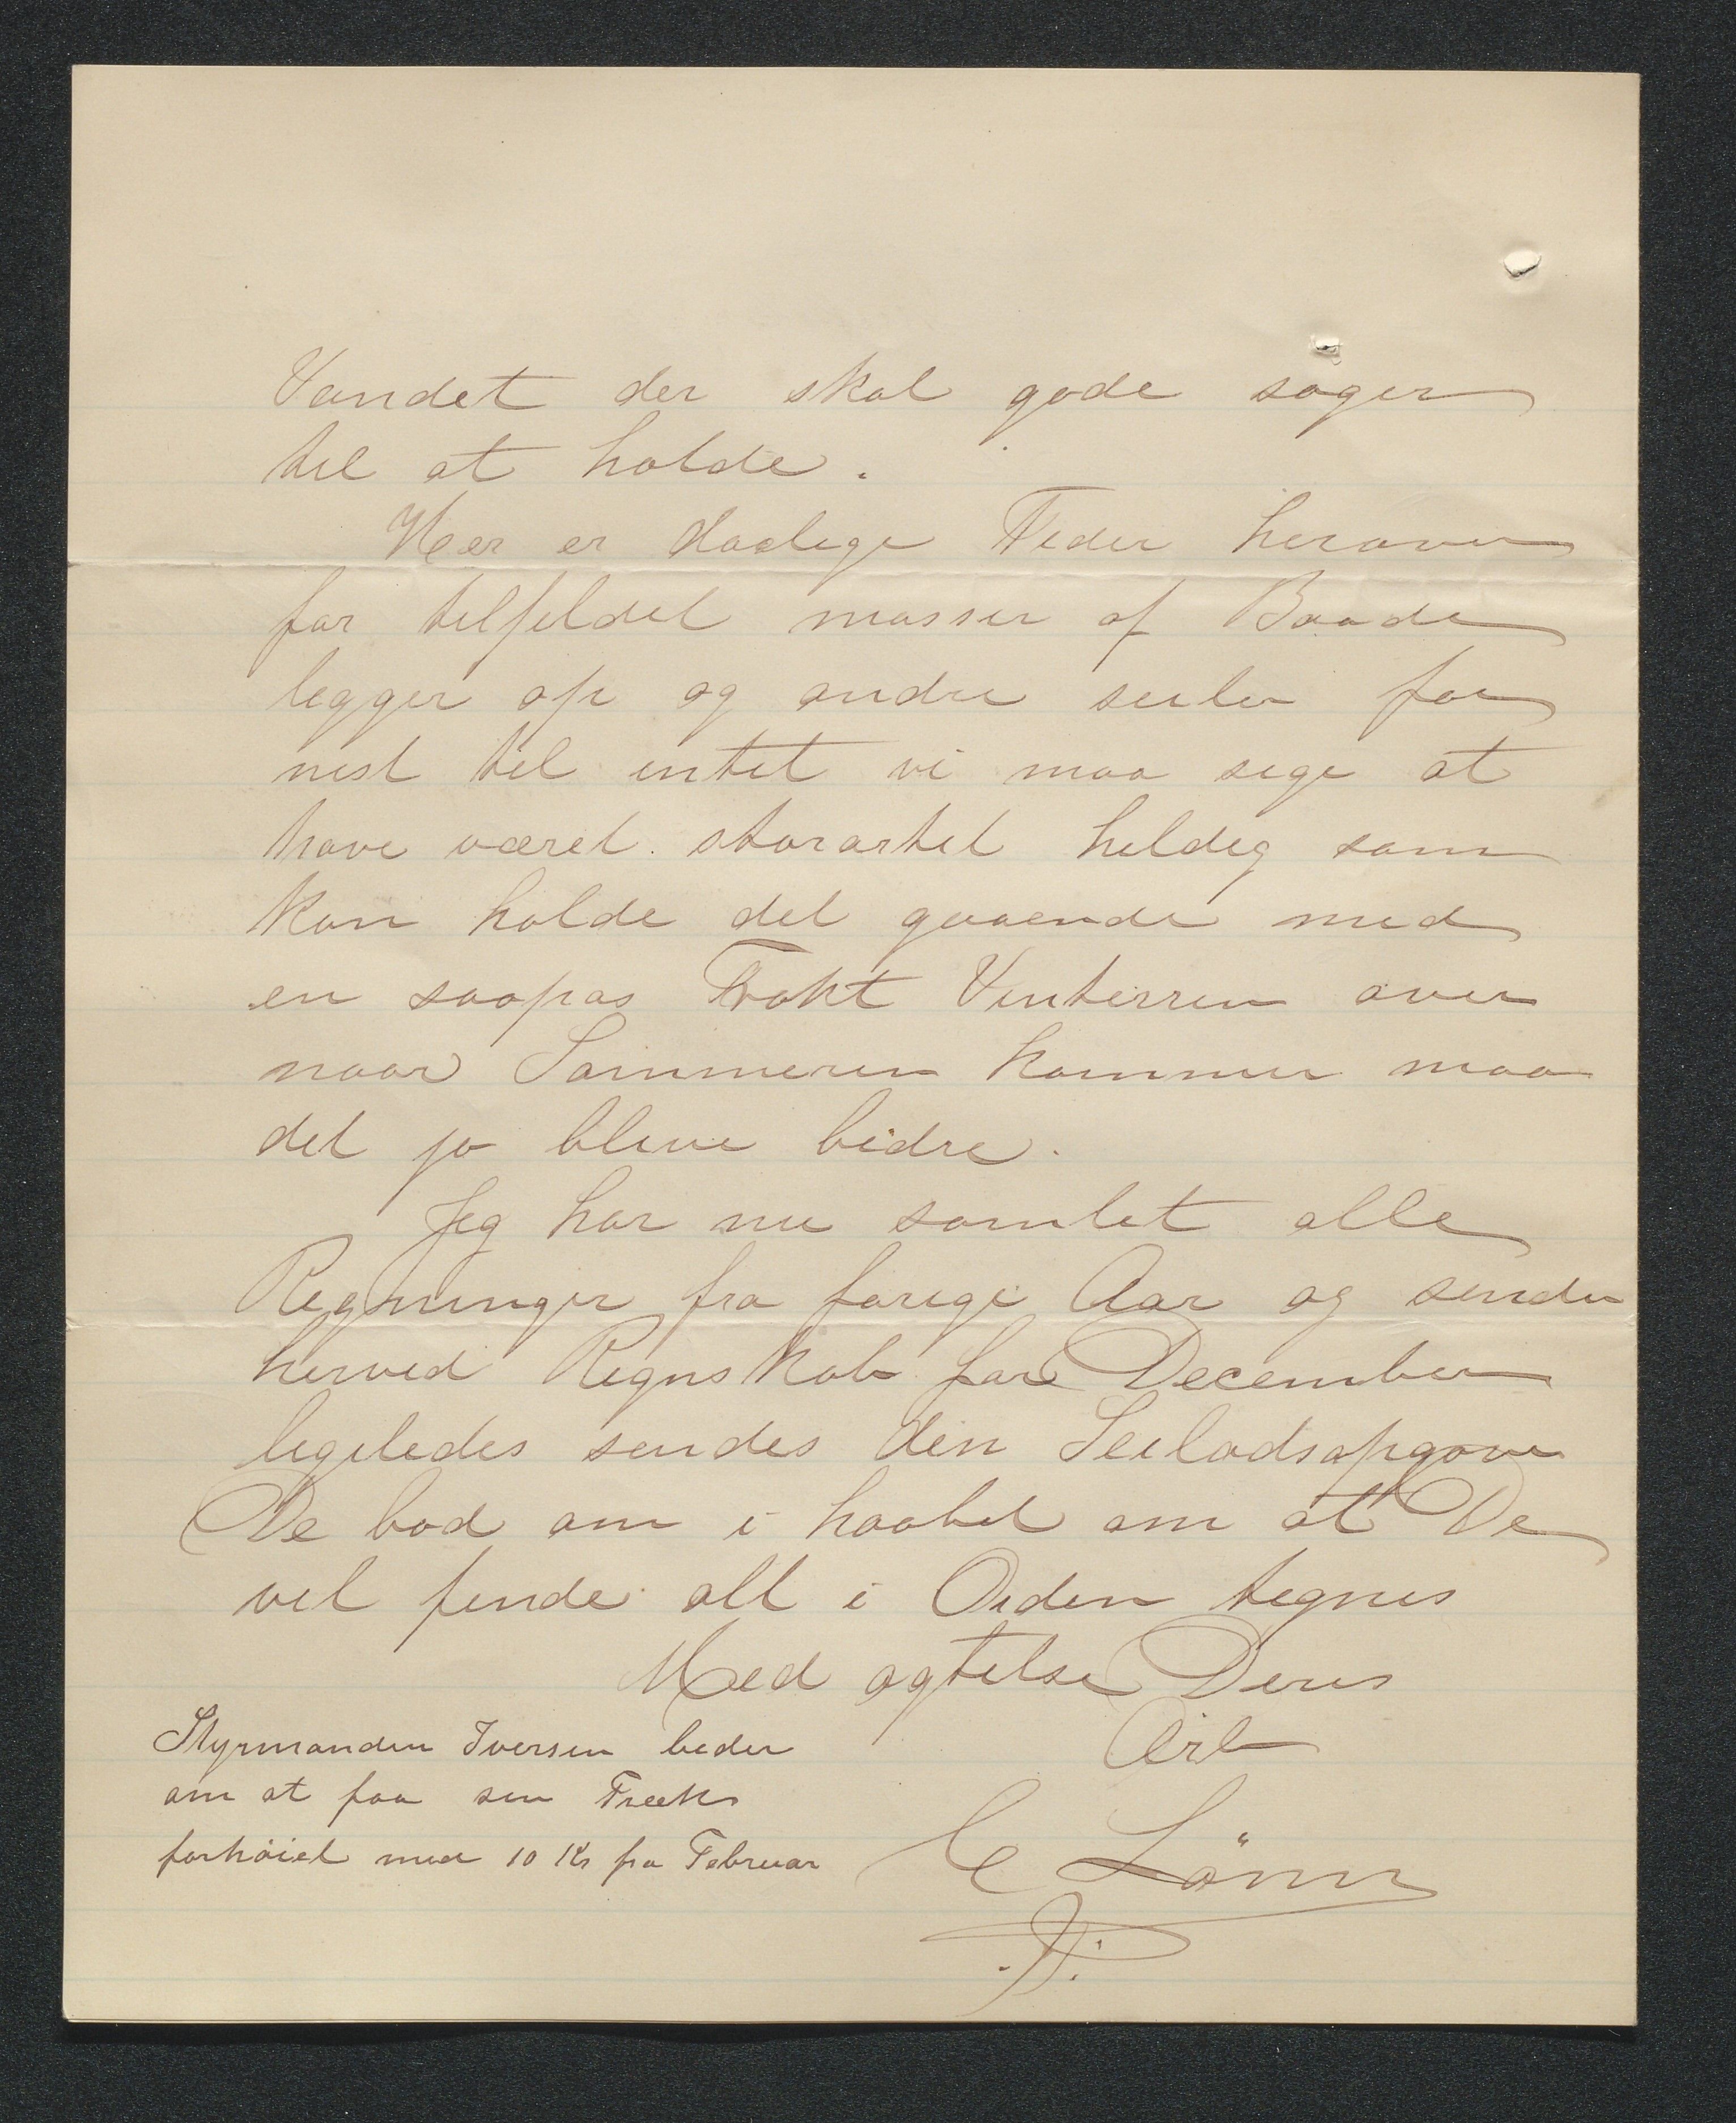 Vandet der skal gode sager
til at holde.
Her er daalige Tider herover
for tilfeldet masser af Baade
legger op og andre seiler for
nest til intet vi maa sige at
have været storartet heldig som
kan holde det gaaende med
en saapas Frakt Vinterren over
naar Sommeren kommer maa
det jo blive bedre.
Jeg har nu samlet alle
Regninger fra forige Aar og sender
herved Regnskab for December
ligeledes sendes den Seiladsopgave
De bad om i haabet om at De
vil finde alt i Orden tegnes
Med agtelse Deres
Ærb
C Lönn
Styrmanden Iversen beder
om at faa sin Træk
forhöiet med 10 Kr fra Februar